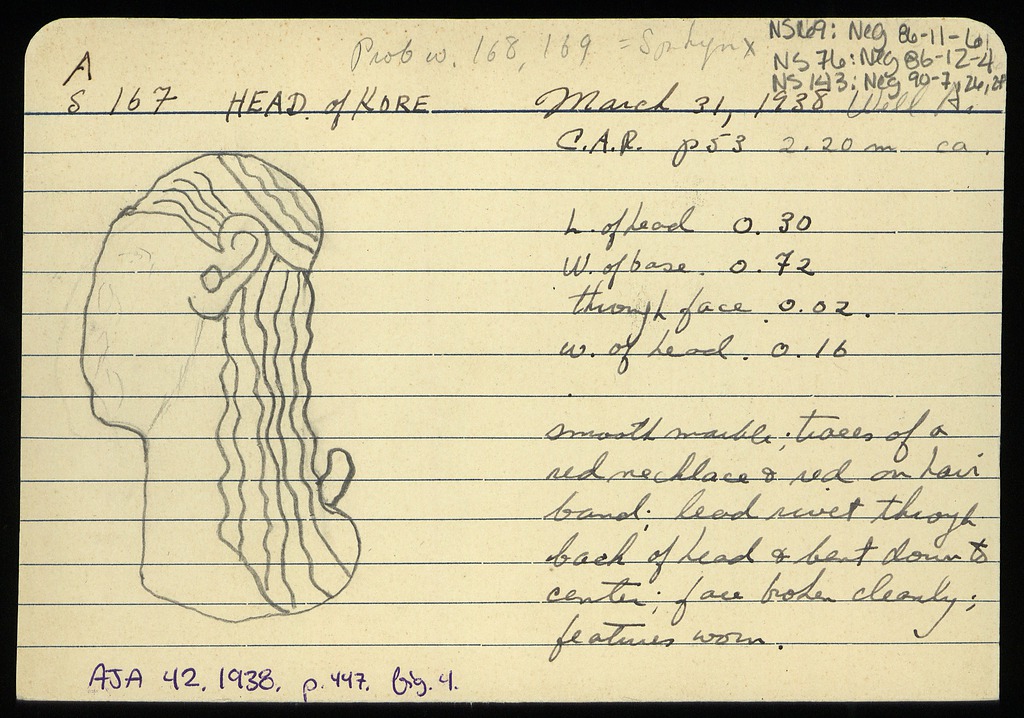 Prob w. 168, 169 = Sphynx
NS 69: Neg 86-11-6
NS 76: Neg 86-12-4
NS 143: Neg 90-7, 26, 28
A
S 167 HEAD of KORE March 31, 1938 Well A.
C.A.R. p53 2.20 m ca.
H. of head 0.30
W. of base. 0.72
through face. 0.02.
w. of head. 0.16
smooth marble; traces of a
red necklace & red on hair
band; lead rivet through
back of head & bent down to
center; face broken cleanly;
features worn.
AJA 42, 1938, p. 447, fig. 4.